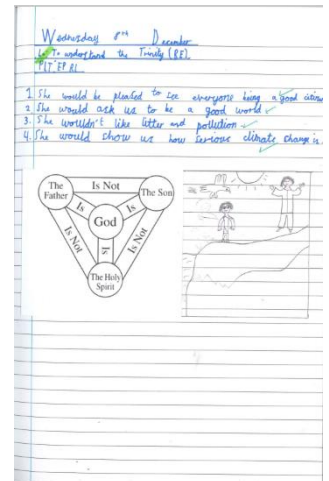 Wednesday 8th December
L.O To understand the Trinity (RE).
PLT: EP RL
1. She would be pleased to see everyone being a good citizen
2. She would ask us to be a good world
3. She wouldn't like litter and pollution
4. She would show us how serious climate change is.
The Father
Is Not
The Son
Is
Is
God
Is Not
Is
Is Not
The Holy Spirit